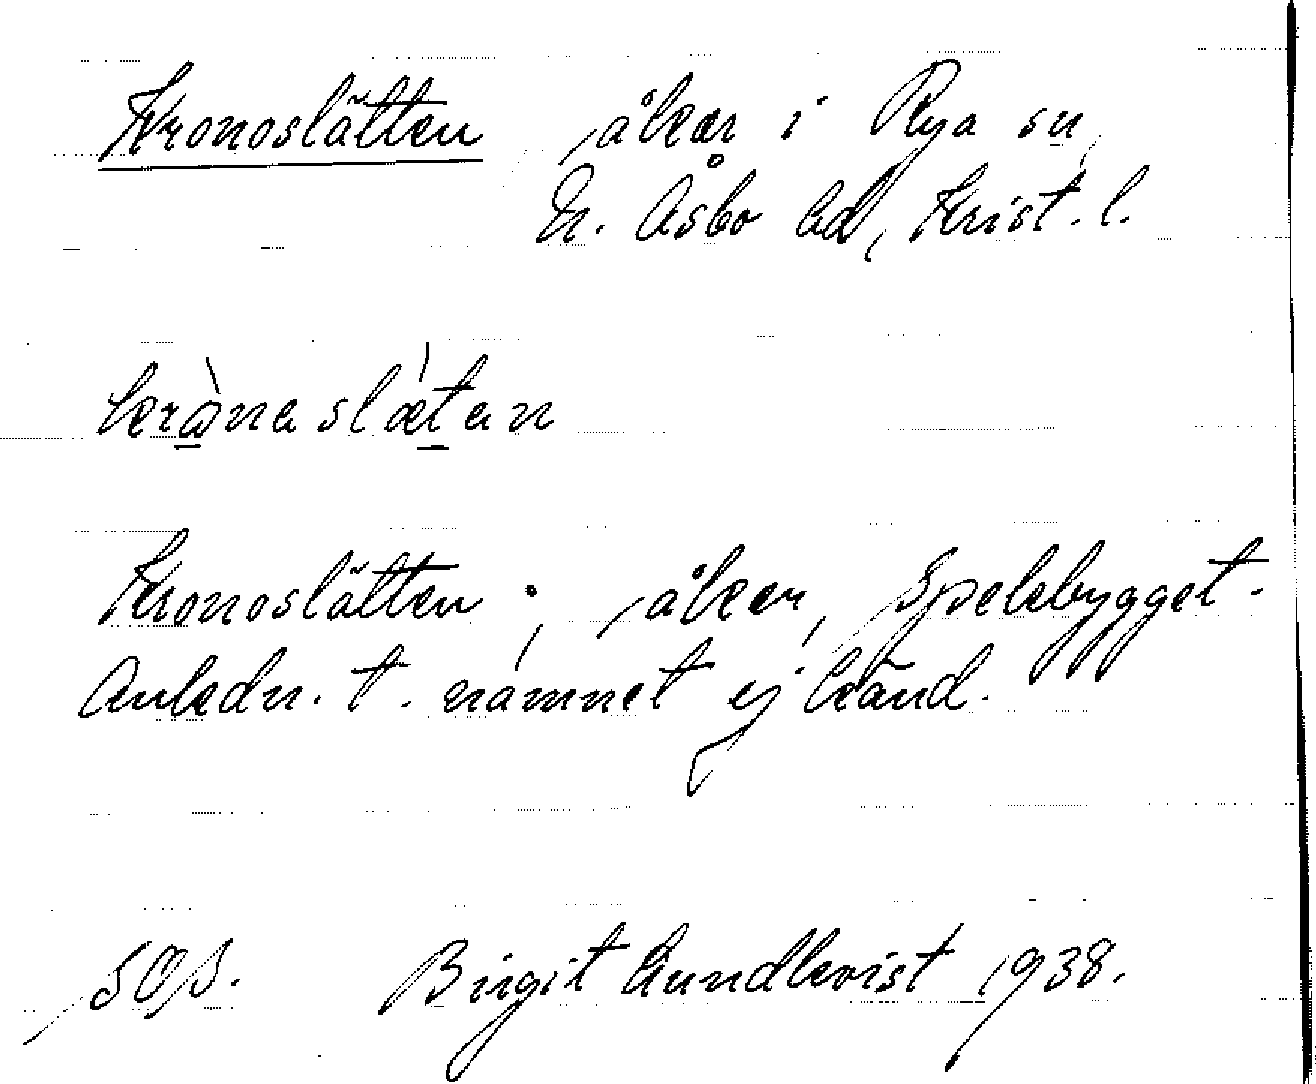 Kronoslätten åker i Rya sn,
N. Åsbo hd, Krist. l.
krònaslǽtan
Kronoslätten; åker, Spelebygget.
Anledn. t. namnet ej känd.
Birgit Lundkvist 1938.